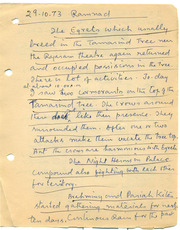 29.10.73 Ramnad
The Egrets which usually
breed in the Tamarind Tree near
the Repair theatre again returned
and occupied positions in the Tree.
There is lot of activities. To day
at about 10 a.m
I saw two Cormorants on the top of the
Tamarind tree. The crows around
them didn't like their presence. They
surrounded them. After one or two
attacks make them vacate the tree top.
But the crows are harmonious with Egrets.
The Night Herons in Palace
compound also fighting with each other
for territory.
Brahminy and Pariah Kites
started gathering materials for nest
ten days. Continuous rain for the past